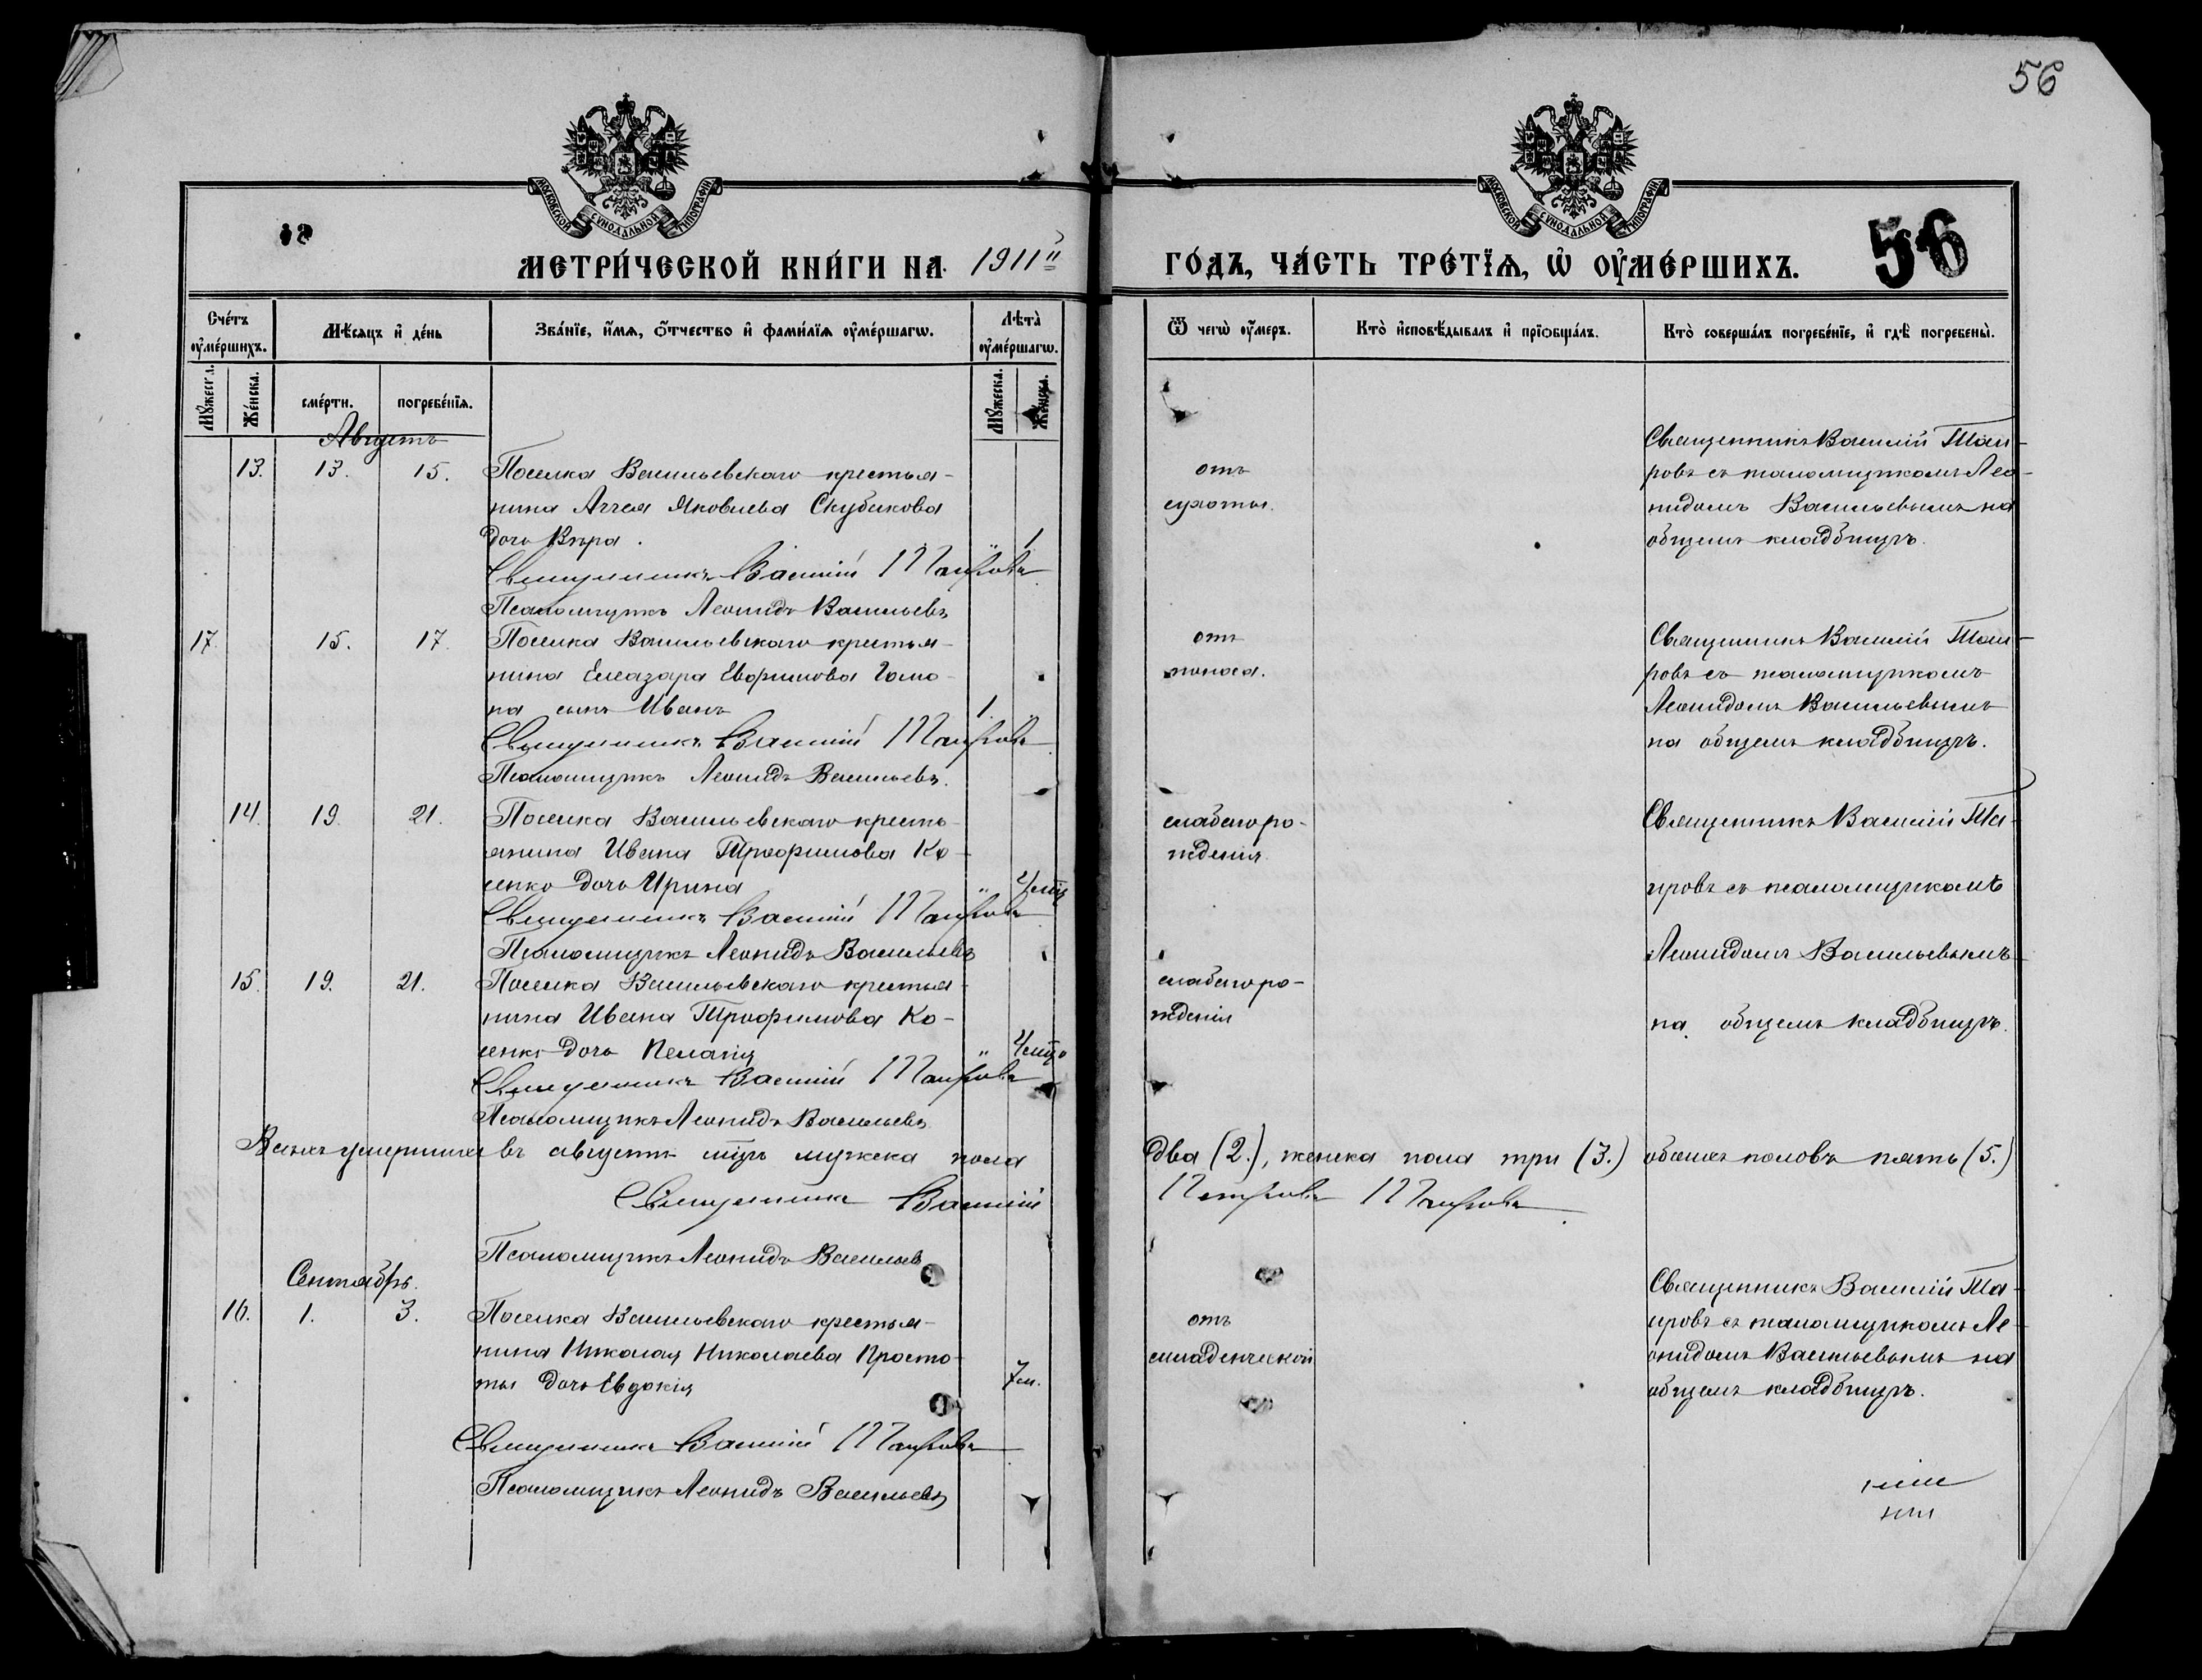 56
МОСКОВСКОЙ СѴНОДАЛЬНОЙ ТИПОГРАФІИ
МОСКОВСКОЙ СѴНОДАЛЬНОЙ ТИПОГРАФІИ
МЕТРИ́ЧЕСКОЙ КНИ́ГИ НА 1911й
ГО́ДЪ, ЧА́СТЬ ТРЕ́ТЇѦ, Ѡ҆ ОУ҆МЕ́РШИХЪ.
56
Сче́тъ оу҆ме́ршихъ.
Мѣ́сѧцъ и҆ де́нь
Зва́нїе, и҆́мѧ, ѻ҆́тчество и҆ фами́лїѧ оу҆ме́ршагѡ.
Лѣта̀ оу҆ме́ршагѡ.
Ѿ чегѡ̀ оу҆́меръ.
Кто̀ и҆сповѣ́дывалъ и҆ прїѻбща́лъ.
Кто̀ соверша́лъ погребе́нїе, и҆ гдѣ̀ погребены̀.
Мꙋ́жеска.
Же́нска.
сме́рти.
погребе́нїѧ.
Мꙋ́жеска.
Же́нска.
Августъ
13. 13. 15. Поселка Васильевскаго крестья-
нина Аггея Яковлева Скубакова
дочь Вѣра. " 1
Священникъ Василій Таировъ
Псаломщикъ Леонидъ Васильевъ
отъ
сухоты.
Священникъ Василій Таи-
ровъ съ псаломщикомъ Лео-
нидомъ Васильевымъ на
общемъ кладбищѣ.
17. 15. 17. Поселка Васильевскаго крестья-
нина Елеазара Ефримова Гомо-
на сынъ Иванъ 1.
Священникъ Василій Таировъ
Псаломщикъ Леонидъ Васильевъ.
отъ
поноса.
Священникъ Василій Таи-
ровъ съ псаломщикомъ
Леонидомъ Васильевымъ
на общемъ кладбищѣ.
14. 19. 21. Поселка Васильевскаго кресть-
янина Ивана Трофимова Ко-
сенко дочь Ирина "
Священникъ Василій Таировъ
Псаломщикъ Леонидъ Васильевъ
слабаго ро-
жденія.
Священникъ Василій Та-
ировъ съ псаломщикомъ
Леонидомъ Васильевымъ
на общемъ кладбищѣ.
15. 19. 21. Поселка Васильевскаго крестья-
нина Ивана Трофимова Ко-
сенко дочь Пелагія "
Священникъ Василій Таировъ
Псаломщикъ Леонидъ Васильевъ
слабаго ро-
жденія
Всѣхъ умершихъ въ августѣ мцѣ мужска пола два (2.), женска пола три (3.) обоихъ половъ пять (5.)
Священникъ Василій Петровъ Таировъ
Псаломщикъ Леонидъ Васильевъ
Сентябрь.
16. 1. 3. Поселка Васильевскаго крестья-
нина Николая Николаева Просто-
ты дочь Евдокія 7 м.
Священникъ Василій Таировъ
Псаломщикъ Леонидъ Васильевъ
отъ
младенческой
Священникъ Василій Та-
ировъ съ псаломщикомъ Ле-
онидомъ Васильевымъ на
общемъ кладбищѣ.